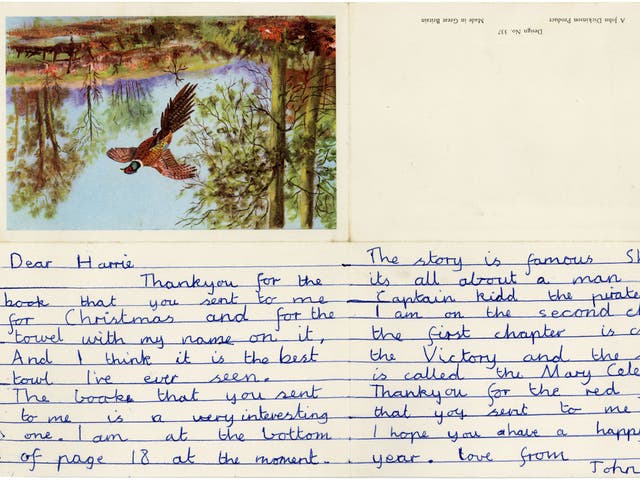 A John Dickinson Product
Design No. 337
Made in Great Britain
Dear Harrie
Thankyou for the
book that you sent to me
for Christmas and for the
towel with my name on it,
And I think it is the best
towl I've ever seen.
The booke that you sent
to me is a very interesting
one. I am at the bottom
of page 18 at the moment.
The story is famous
its all about a man
Captain kidd the pirate
I am on the second
the first chapter is
the Victory and the
is called the Mary
Thankyou for the red
that you sent to me
I hope you ahave a
year. love from
John